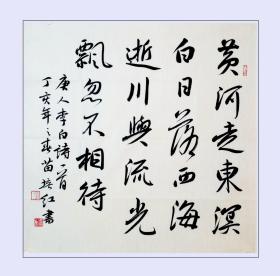 黄河走東溟
白日落西海
逝川與流光
飄忽不相待
唐人李白詩一首
丁亥年之春苗培红書